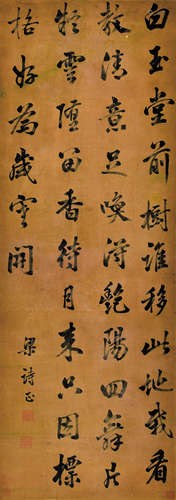 白玉堂前樹誰移此地栽看
教清意足喚得艷陽回舞片
凝雲墮留香待月來只因標
格好為歲寒開
梁詩正